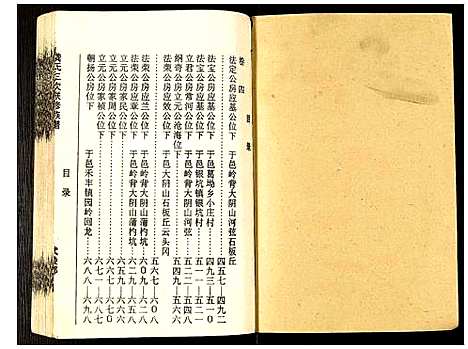 卷四 目录
法定公房应墓公位下 于邑岭背大阴山河弦石板丘……四五七——四九二
法宝公房应墓公位下 于邑葛坳乡小庄村……四九三——五一〇
法宝公房应基公位下 于邑银坑镇银坑村……五一一——五二一
立君公房常河公位下 于邑岭背大阴山河弦……五二二——五四八
绍奇公房立元公沧海位下
法荣公房应效公位下 于邑大阴山石板丘云头冈……五四九——五六六
法荣公房应兰公位下 于邑岭背大阴山蒲杓坑……五六七——六〇八
法荣公房应章公位下 于邑岭背大阴山蒲杓坑……六〇九——六二八
立元公房家民公位下……六二九——六五八
立元公房家周公位下……六五九——六七〇
立元公房家祯公位下……六七一——六八七
朝扬公房位下 于邑禾丰镇园岭回龙……六八八——六九八
氏三次联修族谱
目录